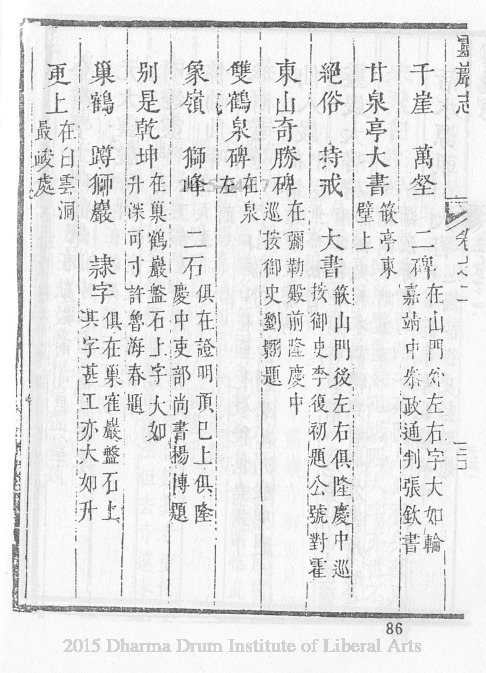 靈巖志 卷之二 三
千崖 萬壑 二碑在山門外左右字大如輪嘉靖中叅政通判張欽書
甘泉亭大書嵌亭東壁上
絕俗 持戒 大書嵌山門後左右俱隆慶中巡按御史李復初題公號對霍
東山奇勝碑在彌勒殿前隆慶中巡按御史劉翾題
雙鶴泉碑在泉左
象嶺 獅峰 二石俱在證明頂已上俱隆慶中吏部尚書楊博題
別是乾坤在巢鶴巖盤石上字大如升深可寸許魯海春題
巢鶴 蹲獅巖 隷字俱在巢寉巖盤石上其字甚工亦大如升
更上在白雲洞最峻處
86
2015 Dharma Drum Institute of Liberal Arts